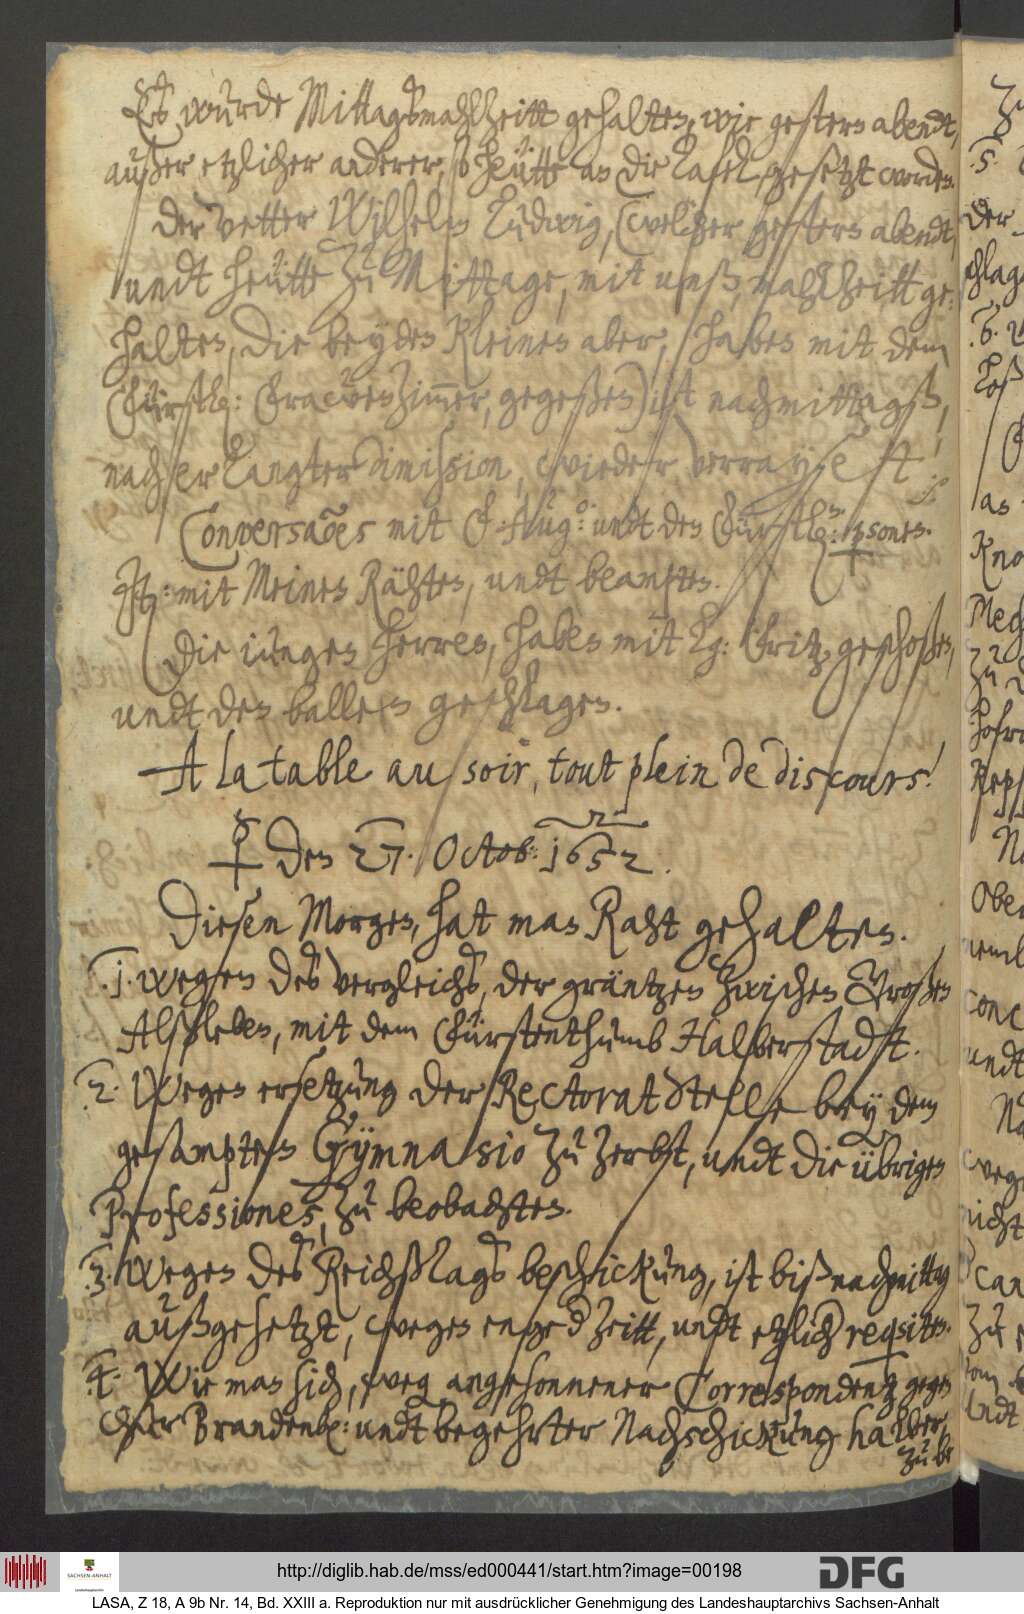 Es wurde Mittagsmahlzeitt gehalten, wie gestern abendt,
außer etzlicher anderer, so heütte an die Tafel, gesetzt worden.
Der Vetter Wilhelm Ludwig, (welcher gestern abendt,
undt heütte zu Mittage, mit unß, mahlzeitt ge-
halten, die beyden Kleinen aber, haben mit dem
Fürstl: Frawenzimmer, gegeßen) ist nachmittagß,
nach erlangter dimission, wieder, verrayset.
Conversaões mit F. Aug: undt den Fürstl: personen.
It: mit Meinen Rähten, undt beampten.
Die iungen Herren, haben mit hg: Fritz, geschoßen,
undt den ballen geschlagen.
A la table au soir, tout plein de discours!
☿ den 27. Octob: 1652.
Diesen Morgen, hat man Raht gehalten.
.1. wegen des Vergleichs, der gräntzen zwischen Großen
Alßleben, mit dem Fürstenthumb Halberstadt.
.2. Wegen ersetzung der Rectorat Stelle bey dem
gesampten Gymnasio zu Zerbst, undt die übrigen
Professiones, zu beobachten.
.3. Wegen des Reichßtags beschickung, ist biß nachmittag
außgesetzt, wegen enge d Zeitt, undt etzlich reqsiten.
.4. Wie man sich, weg angesonnener Correspondentz gegen
Chur Brandenb: undt begehrter Nachschickung halber,
zu be
Zu
.5.
der
schlage
.6.
as
undt
http://diglib.hab.de/mss/ed000441/start.htm?image=00198
SACHSEN-ANHALT
DFG
LASA, Z 18, A 9b Nr. 14, Bd. XXIII a. Reproduktion nur mit ausdrücklicher Genehmigung des Landeshauptarchivs Sachsen-Anhalt